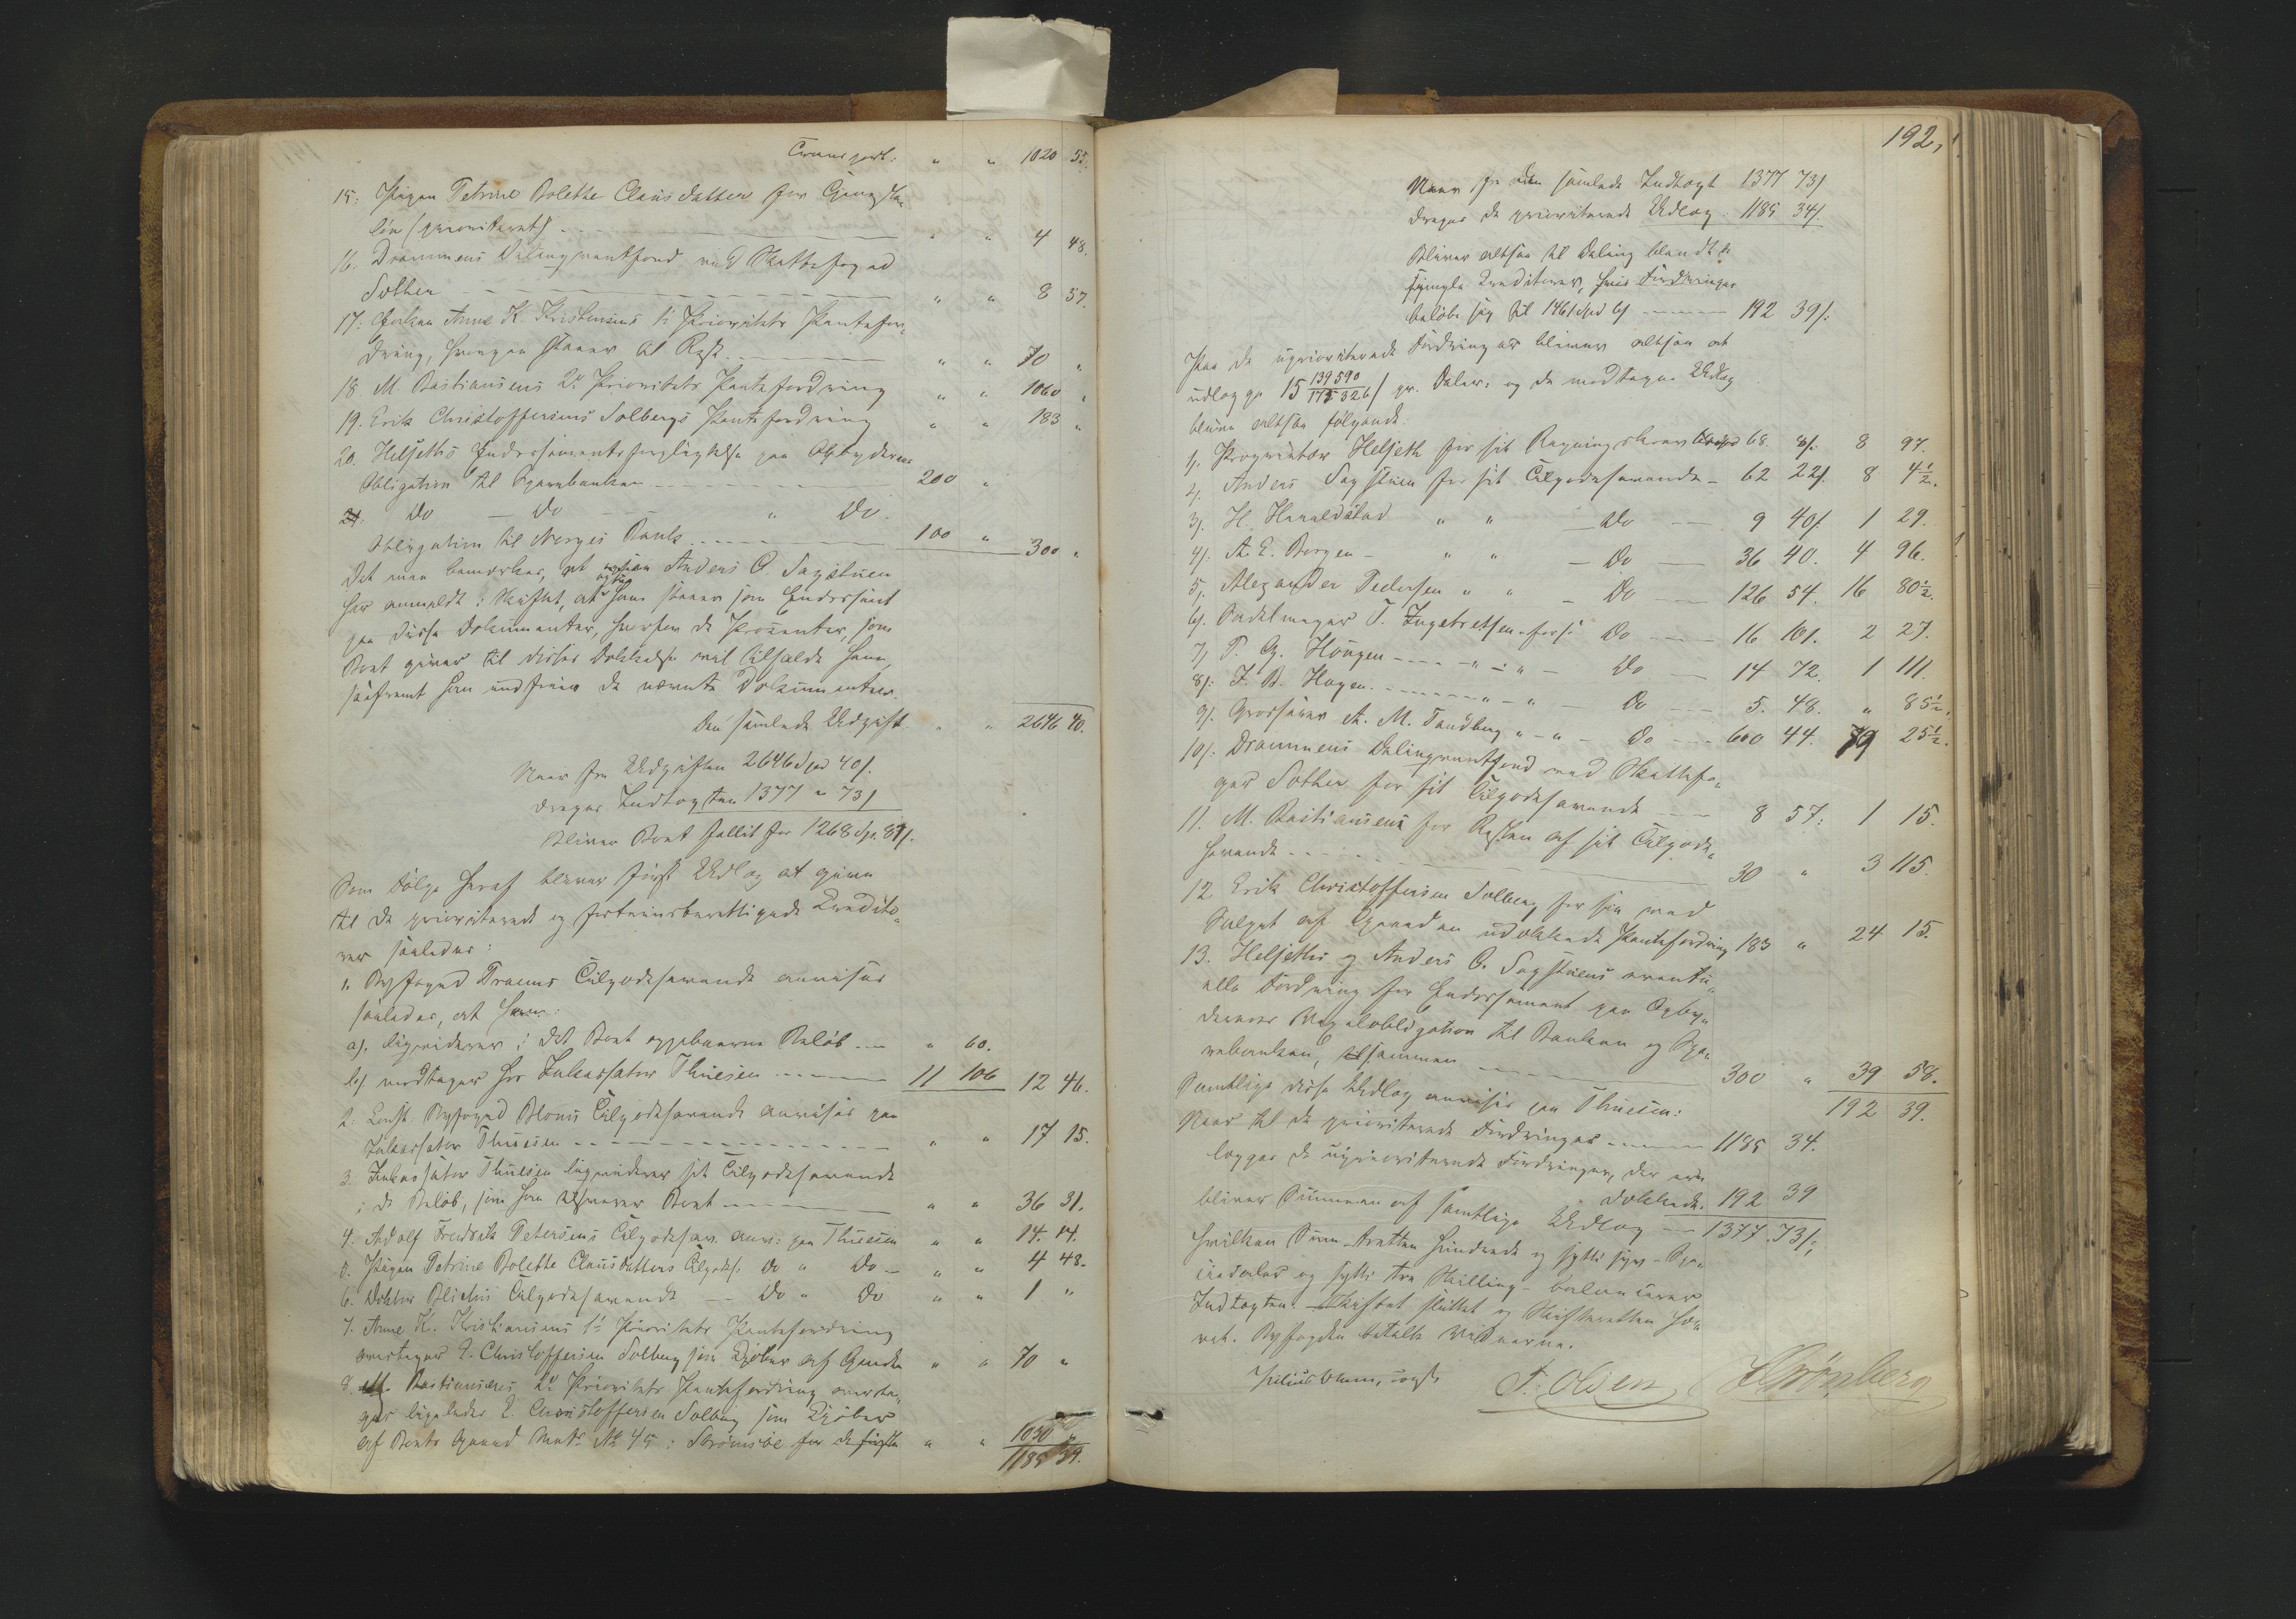 Transport: " " 1020 55.
15: Pigen Petrine Bolethe Clausdatter for Tjeneste
løn (prioriteret) " " 4 48.
16. Drammens Delingsrentfond ved Skattefoged
Sother " " 8 57.
17: Enken Anne K. Kristensens 1ste Prioritets Pantefor-
dring, hvorpaa staaer til Rest " " 70 "
18 M. Bastiansens 2den Prioritets Pantefordring " " 1060 "
19. Erik Christoffersens Solbergs Pantefordring " " 183 "
20. Helseths Endossementsforpligtelse paa Opbyderens
Obligation til Sparebanken 200 "
21. Do — Do — " Do.
Obligation til Norges Bank 100 " 300 "
Det maa bemærkes, at ogsaa Anders O. Sagstuen
har anmeldt i Skiftet, at ogsaa han staaer som Endossent
paa disse Dokumenter, hvorfor de Procenter, som
Boet giver til disses Dækkelse vil tilfalde ham,
saafremt han indfrier de nævnte Dokumenter.
Den samlede Udgift " " 2646 40.
Naar fra Udgiften 2646 Spd 40 s.
drages Indtægten 1377 " 73 s
bliver Boet fallit for 1268 Spd. 87 s.
Som Følge heraf bliver først Udlæg at give
til de prioriterede og fortrinsberettigede Kredito-
rer saaledes:
1. Byfoged Drams Tilgodehavende anvises
saaledes, at han:
a). liqviderer i det Boet oppebaarne Beløb — " 60.
b) modtager hos Inkassator Thuesen 11 106 12 46.
2: Const. Byfoged Bloms Tilgodehavende anvises paa
Inkassator Thuesen " " 17 15.
3. Inkassator Thuesen liqviderer sit Tilgodehavende
i de Beløb, som han tilsvarer Boet " " 36 31.
4. Adolf Fredrik Petersens Tilgodehav. anvi: paa Thuesen " " 14. 14.
5. Pigen Petrine Bolethe Clausdatters Tilgodeh: Do " Do — " " 4 48-
6. Doktor Blichs Tilgodehavende — Do " Do " " 1 "
7. Anne K. Kristiansens 1ste Prioritets Pantefordring
overtager E. Christoffersen Solberg som Kjøber af Gaarden " " 70 "
8. M. Bastiansens 2den Prioritets Pantefordring overta-
ges ligeledes E. Christoffersen Solberg som Kjøber
af Boets Gaard Matr. No 45 i Strømsøe for de første " " 1030 "
1185 34.
192,
Naar fra den samlede Indtægt 1377 73 s
drages de prioriterede Udlæg 1185 34 s.
Bliver altsaa til Deling blandt de
simple Kreditorer, hvis Fordringer
beløbe sig til 1461 Spd 6 s 192 39 s.
Paa de uprioriterede Fordringer bliver altsaa at
udlægge 15 139590/175326 s pr. Daler: og de modtagne Udlæg
blive altsaa følgende:
1). Proprietær Helseth for sit Regningskrav 68 8 s. 8 97.
2). Anders Sagstuen for sit Tilgodehavende - 62 22 s. 8 4½.
3). H. Haraldstad " " — Do — 9 40 s. 1 29.
4). A. E. Borgen — " " — Do — 36 40. 4 96.
5). Alexander Pedersen " " — Do — 126 54. 16 80½.
6). Sadelmager T. Ingebretsen Do — 16 101. 2 27.
7) P. G. Hougen — " - " — Do — 14 72. 1 111.
8). J. B. Hagen — " - " — Do — 5. 48. " 85½.
9). Grosserer A. M. Tandberg " - " — Do — 600 44. 79 25½.
10). Drammens Delingsrentfond ved Skattefo-
ged Sother for sit Tilgodehavende — 8 57: 1 15.
11. M. Bastiansens for Resten af sit Tilgode-
havende 30 " 3 115.
12. Erik Christoffersen Solberg for sin ved
Salget af Gaarden udækkede Pantefordring 183 " 24 15.
13. Helseths og Anders O. Sagstuens eventu-
elle Fordring for Endossement paa Opby-
derens Vexelobligation til Banken og Spa-
rebanken, tilsammen 300 " 39 58.
Samtlige disse Udlæg anvises paa Thuesen: 192 39.
Naar til de prioriterede Fordringer 1185 34.
lægges de uprioriterede Fordringer, der ere
Dækkede. 192 39
bliver Summen af samtlige Udlæg — 1377. 73 s;
hvilken Sum – tretten hundrede og sytti syv – Spe-
ciedaler og sytti tre Skilling – balancerer
Indtægten. – Skiftet sluttet og Skifteretten hæ-
vet. Byfogden betalte Vidnerne.
Julius Blom, const.
T. Olsen Strømberg